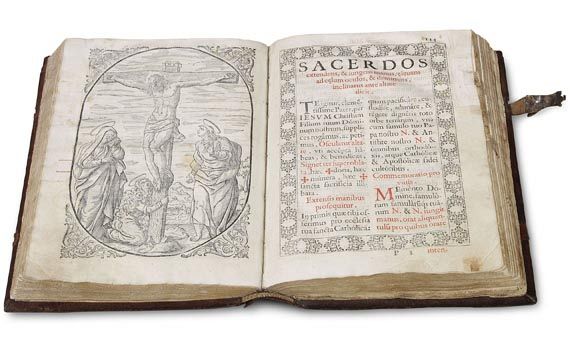 SACERDOS
extendens, & iungens manus, eleuans
ad cælum oculos, & demittens,
inclinatus ante altare
dicit.
TE igitur, clemẽ-
tissime Pater, per
IESVM Christum
Filium tuum Domi-
num nostrum, supplices
rogamus, ac peti-
mus, Osculatur altare
, vti accepta
habeas, & benedicas,
Signat ter super oblata
hæc ✠ dona, hæc
✠ munera, hæc ✠
sancta sacrificia illibata
Extensis manibus
prosequitur.
In primis quæ tibi of-
ferimus pro ecclesia
tua sancta Catholica:
quam pacificare, cu-
stodire, adunare, &
regere digneris toto
orbe terrarum, vna
cum famulo tuo Pa-
pa nostro N. & An-
tistite nostro N. &
omnibus orthodo-
xis, atque Catholicæ
& Apostolicæ fidei
cultoribus.
Commemoratio pro
viuis.
MEmento Do-
mine, famulorũ
famularũq; tuarum
N. & N. iungit
manus, orat aliquan-
tulũ pro quibus orare
P 3
inten-